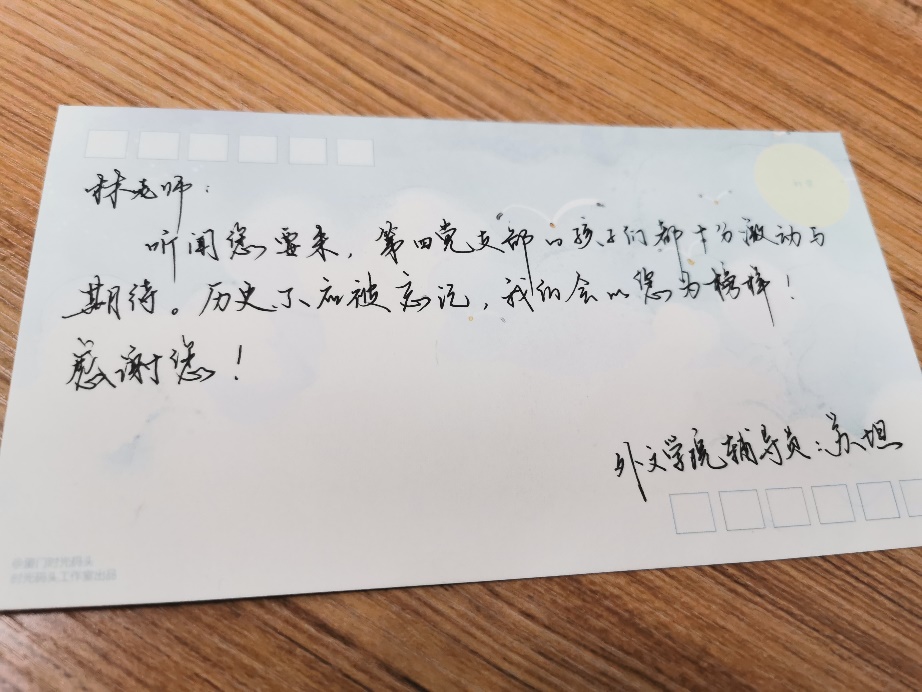 林老师：
听闻您要来，第四党支部的孩子们都十分激动与
期待。历史不应被忘记，我们会以您为榜样！
感谢您！
外文学院辅导员：苏坦